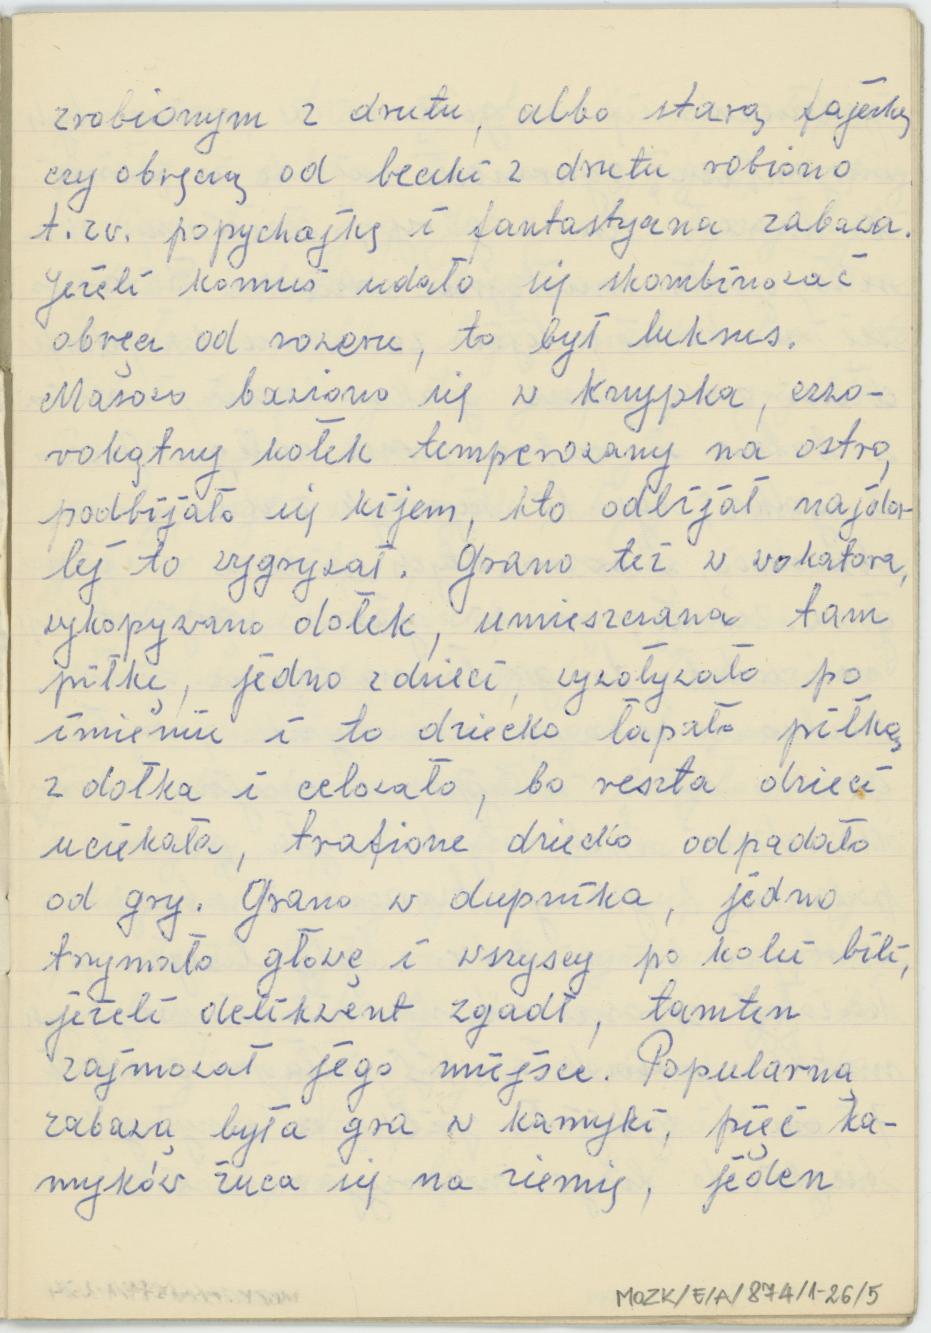 zrobionym z drutu, albo starą fajerkę
czy obręczą od beczki z drutu robiono
t.zw. popychajkę i fantastyczna zabawa.
Jeżeli komuś udało się skombinować
obręcz od roweru, to był luksus.
Masowo bawiono się w Knypka, czwo-
rokątny kołek temperowany na ostro,
podbijało się kijem, kto odbijał najda-
lej to wygrywał. Grano też w wokatora,
wykopywano dołek, umieszczana tam
piłkę, jedno z dzieci, wywoływało po
imieniu i to dziecko łapało piłkę
z dołka i celowało, bo reszta dzieci
uciekała, trafione dziecko odpadało
od gry. Grano w dupnika, jedno
trzymało głowę i wszyscy po kolei bili,
jeżeli delikwent zgadł, tamten
zajmował jego miejsce. Popularną
zabawą była gra w kamyki, pięć ka-
myków żuca się na ziemię, jeden
MOZK/E/A/874/1-26/5